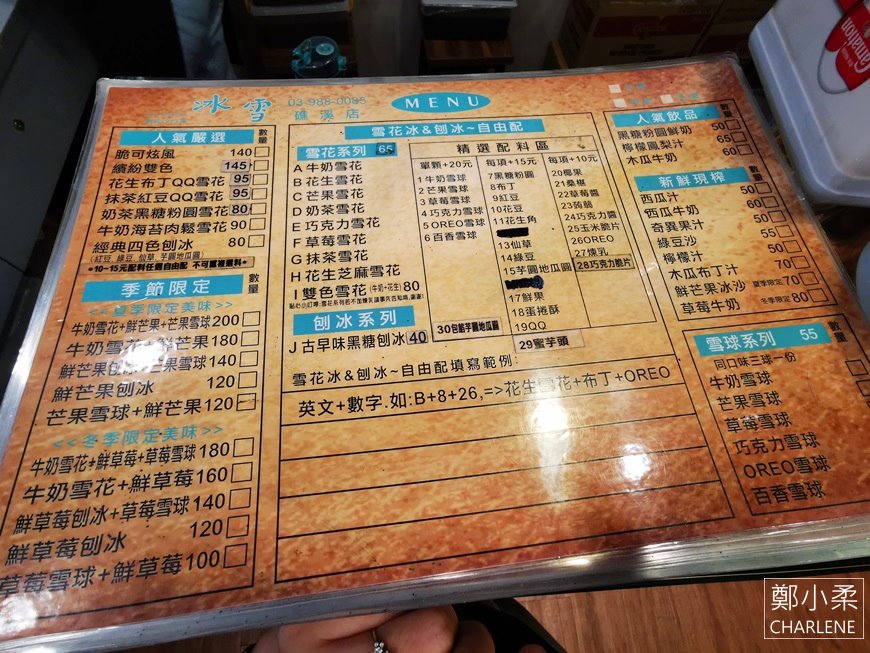 冰雪
03-988-0085
礁溪店
MENU
人氣嚴選
數量
脆可炫風 140
繽紛雙色 145
花生布丁QQ雪花 95
抹茶紅豆QQ雪花 95
奶茶黑糖粉圓雪花 80
牛奶海苔肉鬆雪花 90
經典四色刨冰 80
(紅豆、綠豆、仙草、芋圓地瓜圓)
*10~15元配料任選自由配 不可重複選料*
季節限定
數量
<<夏季限定美味>>
牛奶雪花+鮮芒果+芒果雪球 200
牛奶雪花+鮮芒果 180
鮮芒果刨冰+芒果雪球 140
鮮芒果刨冰 120
芒果雪球+鮮芒果 120
<<冬季限定美味>>
牛奶雪花+鮮草莓+草莓雪球 180
牛奶雪花+鮮草莓 160
鮮草莓刨冰+草莓雪球 140
鮮草莓刨冰 120
草莓雪球+鮮草莓 100
雪花冰&刨冰~自由配
雪花系列 65
A 牛奶雪花
B 花生雪花
C 芒果雪花
D 奶茶雪花
E 巧克力雪花
F 草莓雪花
G 抹茶雪花
H 花生芝麻雪花
I 雙色雪花 (牛奶+花生) 80
刨冰系列
J 古早味黑糖刨冰 40
精選配料區
單顆+20元
1 牛奶雪球
2 芒果雪球
3 草莓雪球
4 巧克力雪球
5 OREO雪球
6 百香雪球
30包餡芋圓地瓜圓
每項+15元
7 黑糖粉圓
8 布丁
9 紅豆
10 花豆
11 花生角
13 仙草
14 綠豆
15 芋圓地瓜圓
17 鮮果
18 蛋捲酥
19 QQ
29蜜芋頭
每項+10元
20 椰果
21 桑椹
22 草莓醬
23 蒟蒻
24 巧克力醬
25 玉米脆片
26 OREO
27 煉乳
28 巧克力脆片
雪花冰&刨冰~自由配填寫範例:
英文+數字.如:B+8+26,=>花生雪花+布丁+OREO
人氣飲品
數量
黑糖粉圓鮮奶 50
檸檬鳳梨汁 65
木瓜牛奶 60
新鮮現榨
數量
西瓜汁 50
西瓜牛奶 60
奇異果汁 50
綠豆沙 55
檸檬汁 50
木瓜布丁汁 70
鮮芒果冰沙 夏季限定 70
草莓牛奶 冬季限定 80
雪球系列 55
數量
同口味三球一份
牛奶雪球
芒果雪球
草莓雪球
巧克力雪球
OREO雪球
百香雪球
Carnation
鄭小柔
CHARLENE